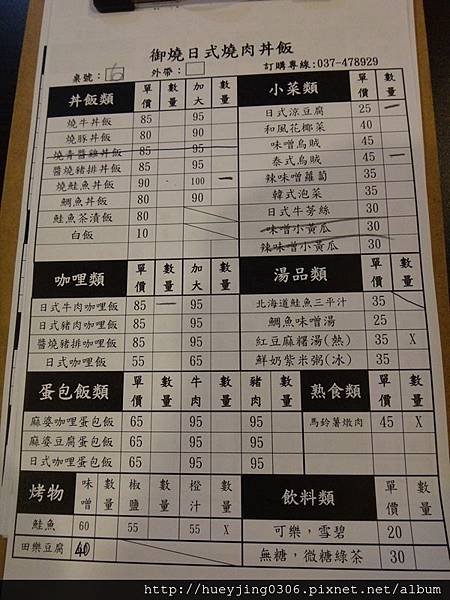 御燒日式燒肉丼飯
桌號：6 外帶：
訂購專線:037-478929
丼飯類 單價 數量 加大 數量
燒牛丼飯 85 95
燒豚丼飯 80 90
燒青醬雞丼飯 85 95
醬燒豬排丼飯 85 95
燒鮭魚丼飯 90 100 一
鯛魚丼飯 80 90
鮭魚茶漬飯 80
白飯 10
小菜類 單價 數量
日式涼豆腐 25 一
和風花椰菜 40
味噌烏賊 45
泰式烏賊 45 一
辣味噌蘿蔔 35
韓式泡菜 35
日式牛蒡絲 30
味噌小黃瓜 30
辣味噌小黃瓜 30
咖哩類 單價 數量 加大 數量
日式牛肉咖哩飯 85 一 95
日式豬肉咖哩飯 85 95
醬燒豬排咖哩飯 85 95
日式咖哩飯 55 65
湯品類 單價 數量
北海道鮭魚三平汁 35
鯛魚味噌湯 25
紅豆麻糬湯(熱) 35 X
鮮奶紫米粥(冰) 35
蛋包飯類 單價 數量 牛肉 數量 豬肉 數量
麻婆咖哩蛋包飯 65 95 95
麻婆豆腐蛋包飯 65 95 95
日式咖哩蛋包飯 65 95 95
熟食類 單價 數量
馬鈴薯燉肉 45 X
烤物 味噌 數量 椒鹽 數量 橙汁 數量
鮭魚 60 55 55 X
田樂豆腐 40
飲料類 單價 數量
可樂，雪碧 20
無糖，微糖綠茶 30
http://hueyjing0306.pixnet.net/album